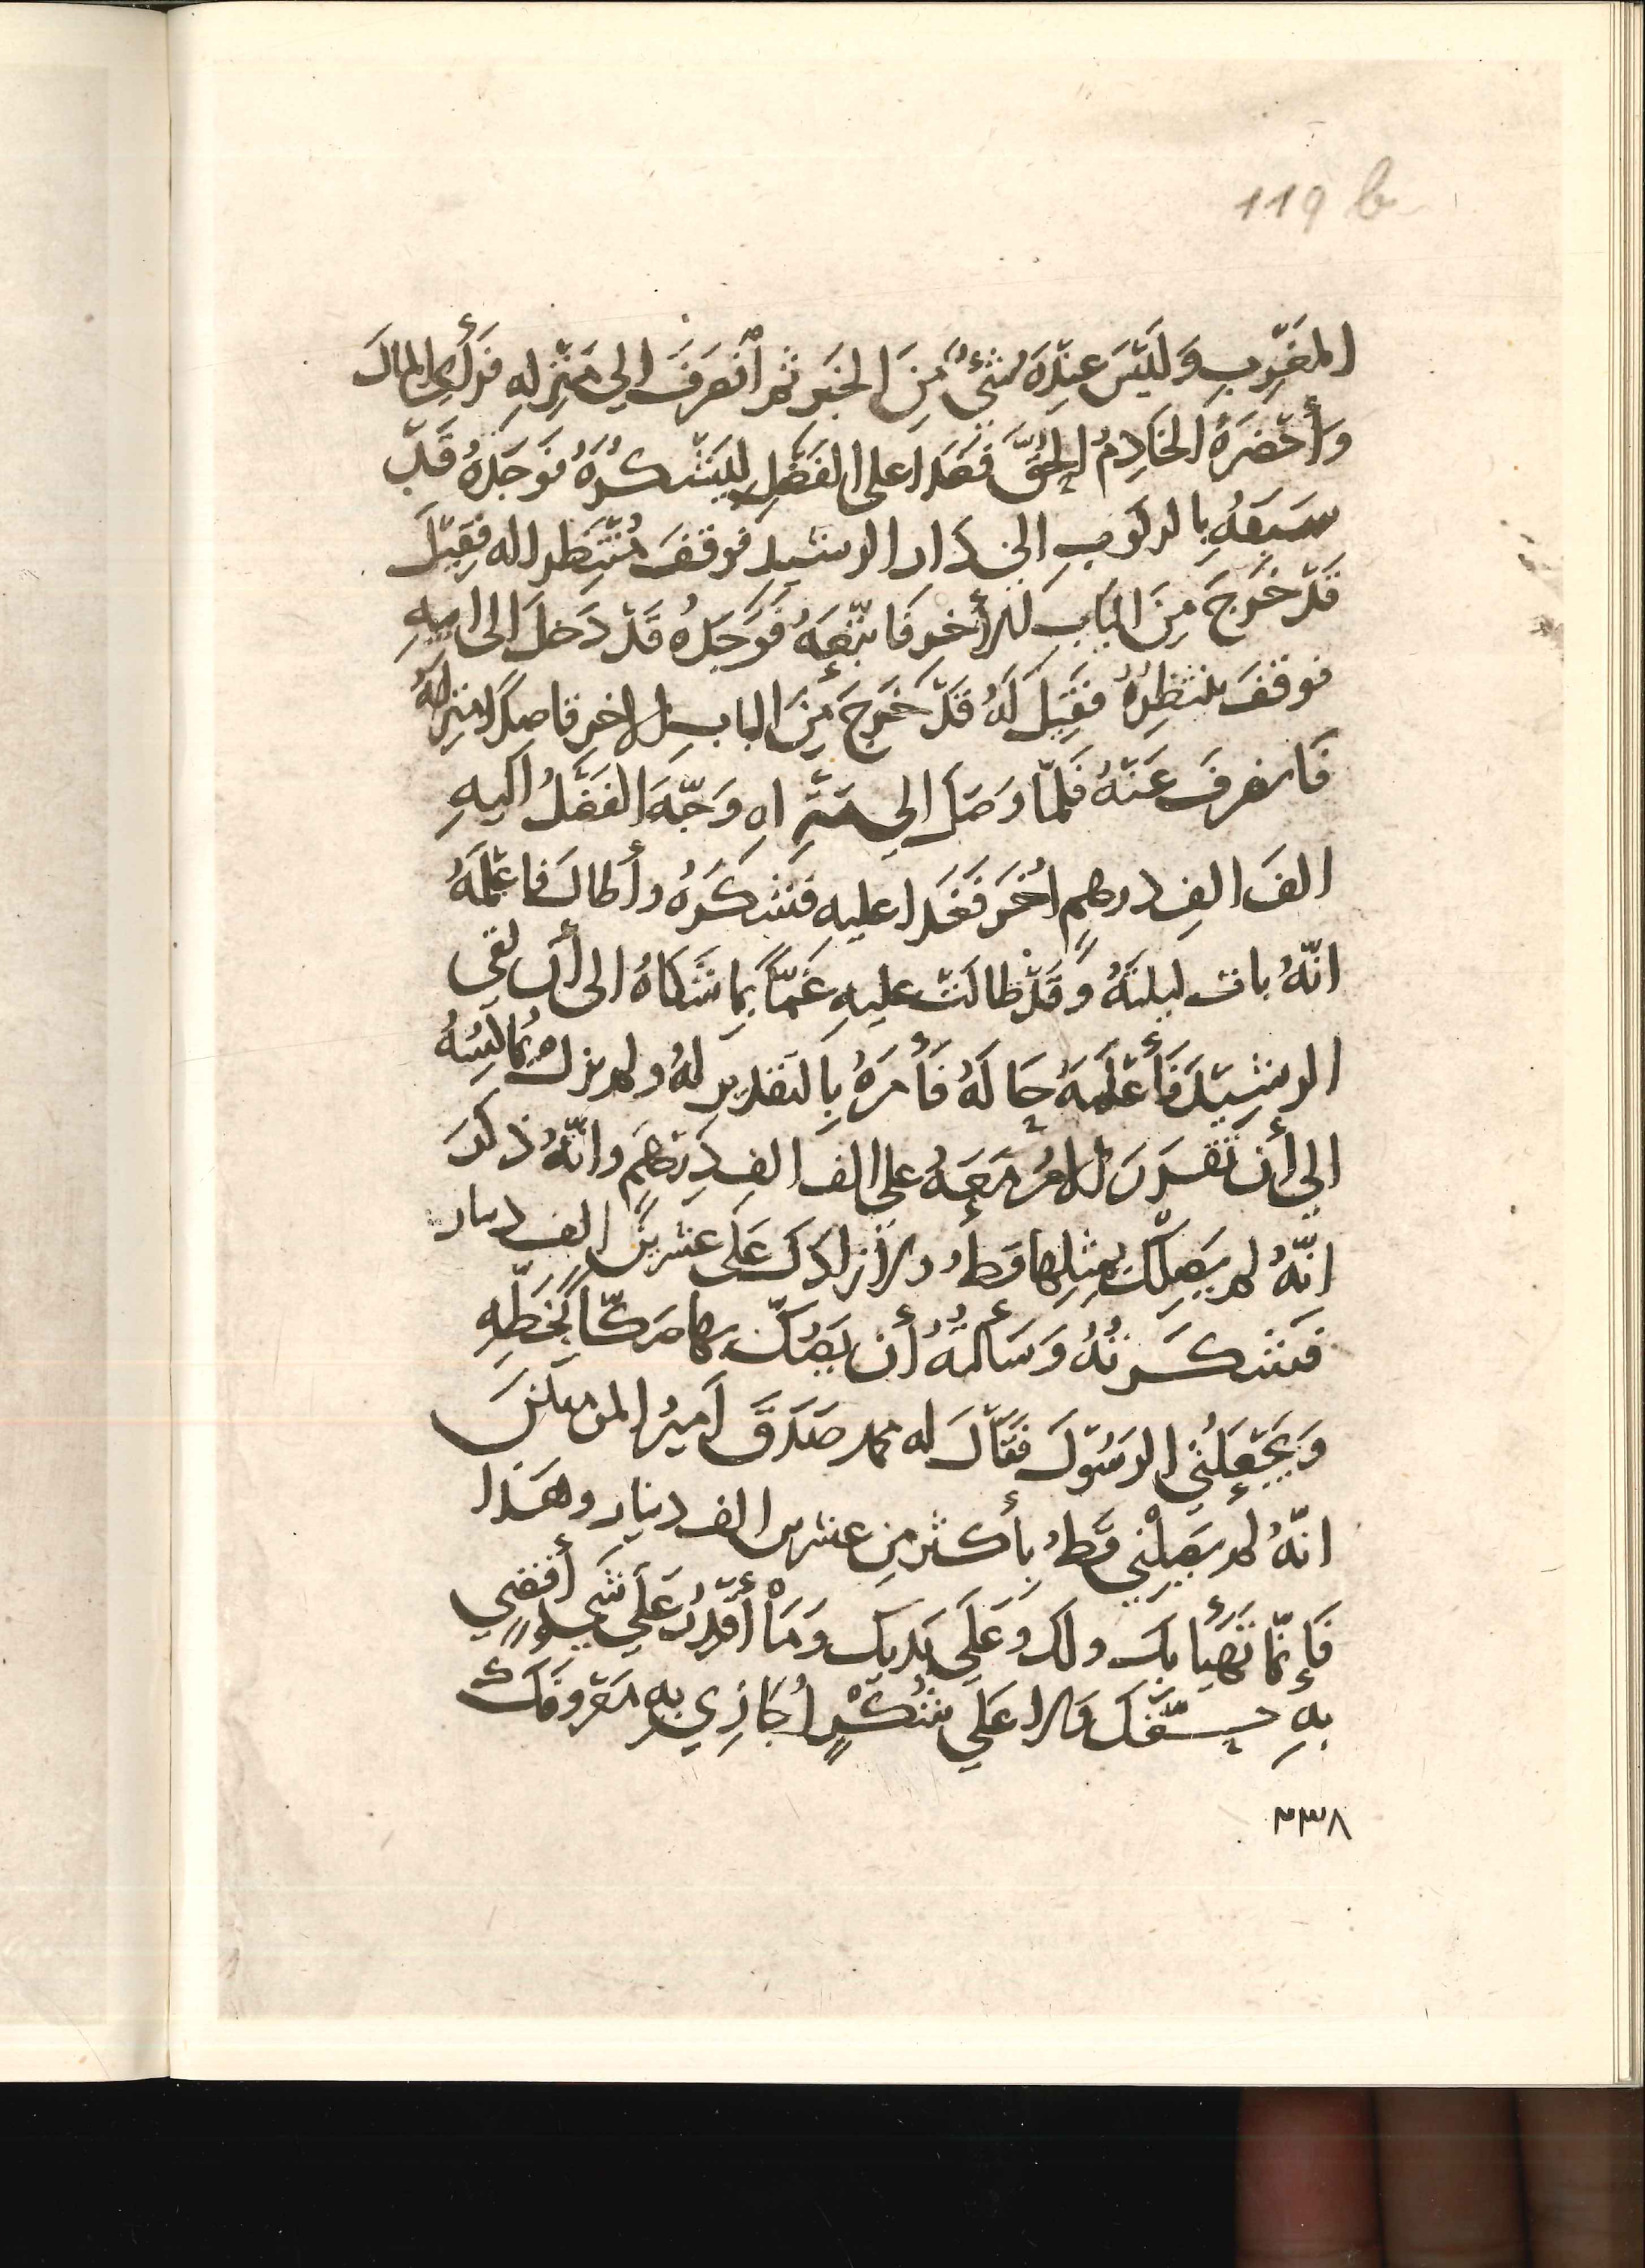 119 b
المَغرِبِ وَلَيْسَ عِندَهُ شَيءٌ مِنَ الخَبَر ثم أنصَرَفَ الي مَنْزِلهِ فَرَأي المَالَ
وَأحْضَرَهُ الخَادِمُ الحُقَّ فغَدا على الفَضْلِ ليَشْكُرَهُ فوَجَدَهُ قَدْ
سَبَقهُ بالركوبِ الي دَار الرشيد فوقفَ مُنْتَظِرا له فقِيْلَ
قَدْ خَرَجَ مِنَ البَابِ الأخر فَاتْبَعَهُ فَوَجَدهُ قَدْ دَخلَ الى ابيهِ
فوقفَ ينتظِرُهُ فقِيْلَ لَهُ قَدْ خَرَجَ مِنَ البابِ الاخرِ قاصِدًا منزِلَهُ
فَانصرفَ عَنْهُ فَلمّا وَصَلَ الي مَنْزِلهِ وَجّهَ الفَضْلُ اليهِ
الفَ الفِ درهمٍ اُخرَ فَغَدا عليهِ فشَكَرَهُ وأطالَ فاعْلَمَهُ
انّهُ باتَ ليلتَهُ وَقَدْ طالَتْ عليهِ غَمّاً بِمَا شَكاهُ الى أن لقي
الرشِيْدَ فَأعْلَمَهُ حَالَهُ فَأمَرَهُ بِالتقدير لهُ ولم يزل يُمَاكِسُهُ
الي أن تَقَرّرَ الامرُ مَعَهُ على الف الفِ دِرْهَمٍ وانّهُ ذكرَ
انّهُ لم يَصِلْكَ بمِثلِها قطُ ولا زادَكَ عَلى عشرينَ الف دينار
فشكَرتُهُ وَسَألتُهُ أن يَصُكّ بها صَكّاً بخَطّهِ
وَيَجْعَلَنِي الرسُولَ فقالَ له محمد صَدَقَ اَميرُ المومنينَ
انّهُ لم يَصِلْني قطُ بأكثر مِن عشرين الف دينار وهَذا
فَإنّما تهَيأ بكَ ولكَ وعَلَي يَدَيكَ وَمَا أقْدِرُ عَلَي شَيءٍ أقضِي
بهِ حَقّكَ ولا عَلَي شُكْرٍ أُجَازِي بهِ مَعْرُوفَكَ
٣٣٨